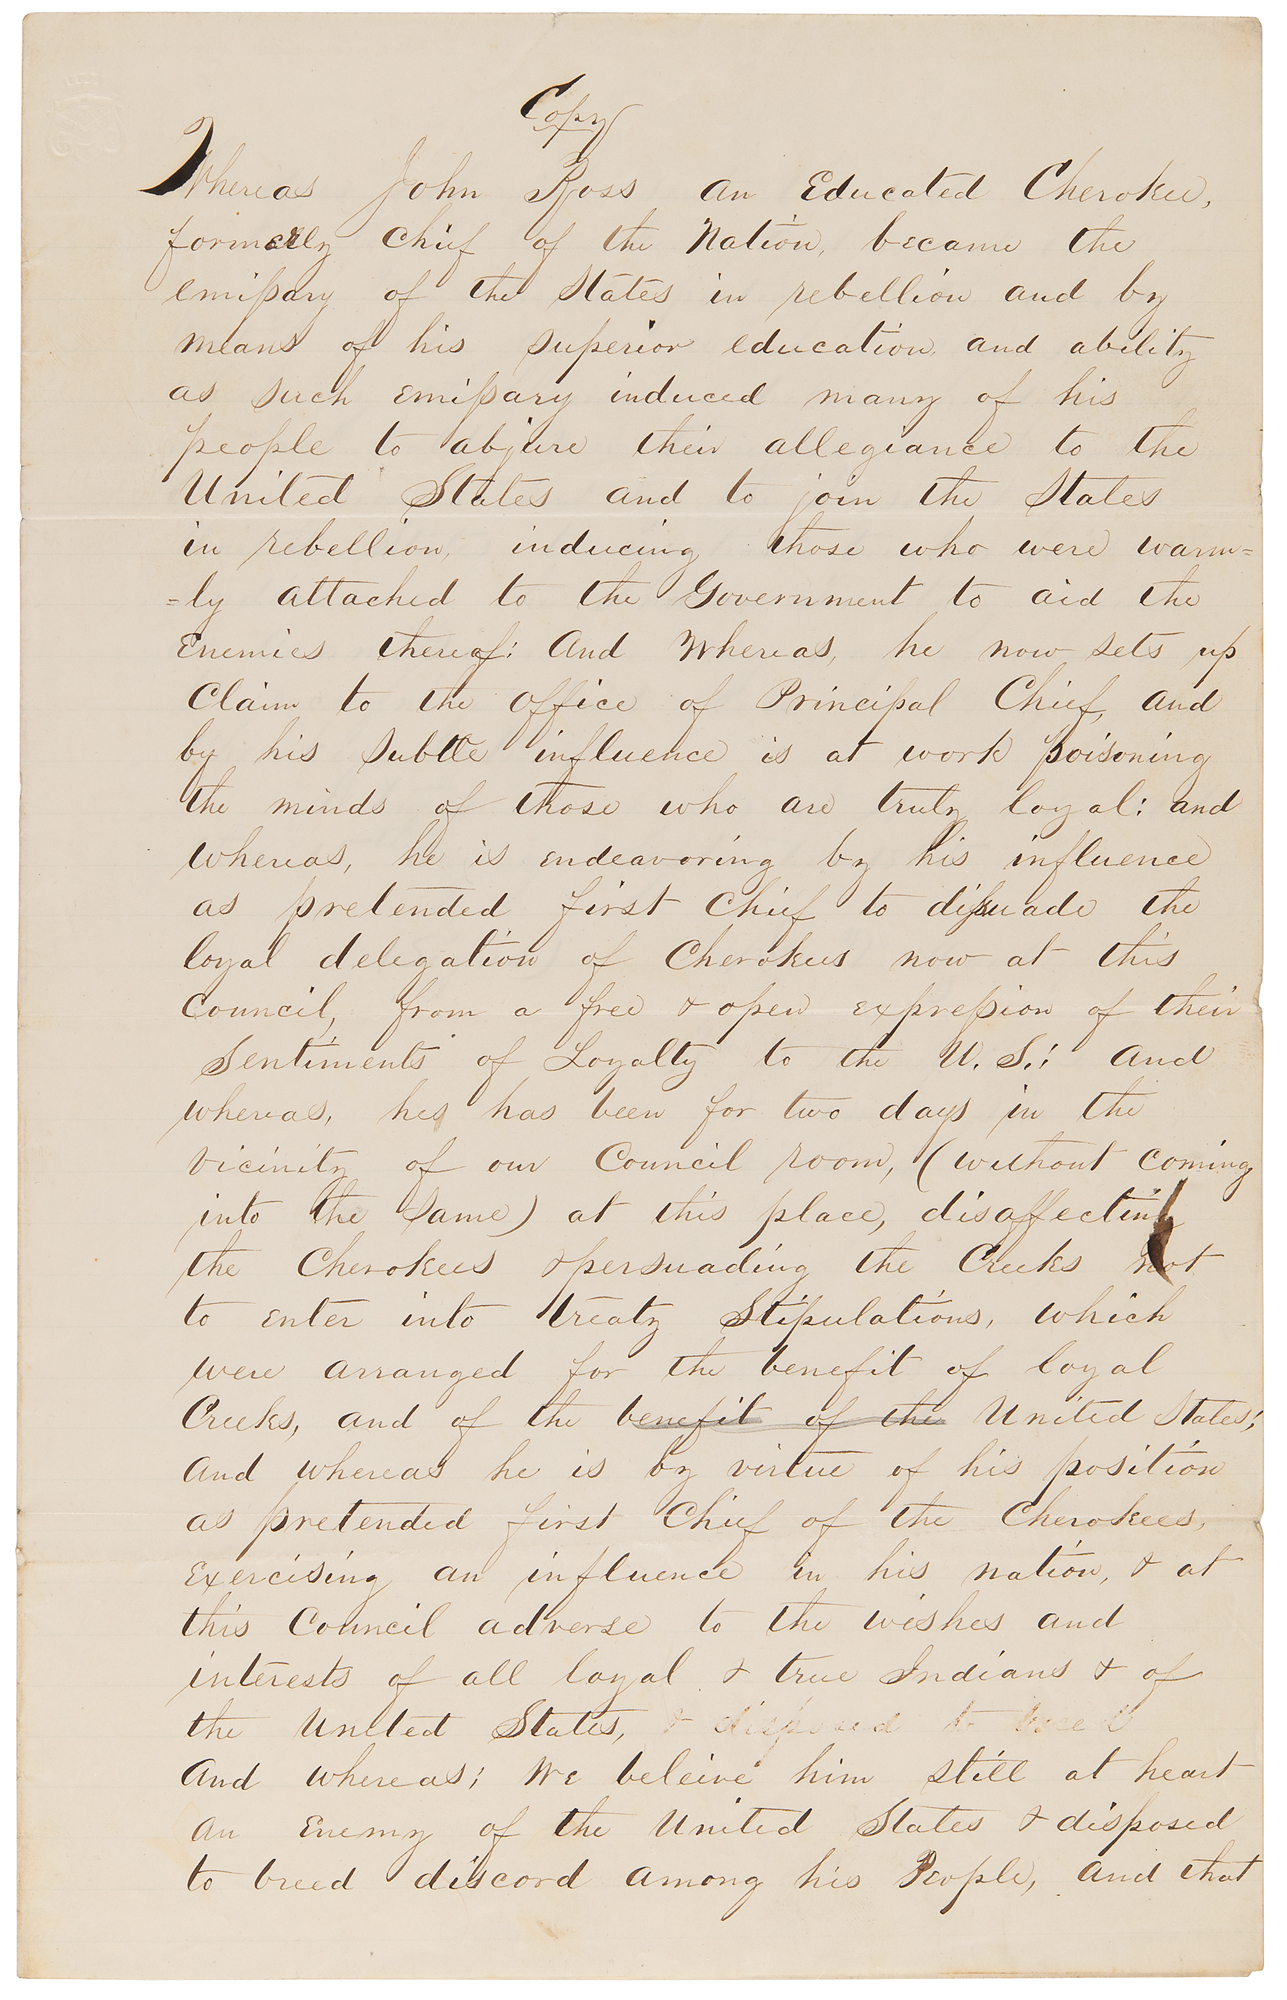 Copy
Whereas John Ross an Educated Cherokee,
formerly Chief of the Nation, became the
emissary of the States in rebellion and by
means of his superior education and ability
as such emissary induced many of his
people to abjure their allegiance to the
United States and to join the States
in rebellion, inducing those who were warm=
=ly attached to the Government to aid the
Enemies thereof: And Whereas, he now sets up
Claim to the office of Principal Chief, and
by his subtle influence is at work poisoning
the minds of those who are truly loyal: and
whereas, he is endeavoring by his influence
as pretended first Chief to dissuade the
loyal delegation of Cherokees now at this
Council, from a free & open expression of their
Sentiments of Loyalty to the U. S.: and
whereas, he has been for two days in the
vicinity of our Council room, (without coming
into the same) at this place, disaffecting
the Cherokees & persuading the Creeks not
to enter into treaty Stipulations, which
were arranged for the benefit of loyal
Creeks, and of the benefit of the United States;
And whereas he is by virtue of his position
as pretended first Chief of the Cherokees,
Exercising an influence in his nation, & at
this Council adverse to the wishes and
interests of all loyal & true Indians & of
the United States, & disposed to breed
And whereas; We beleive him still at heart
an Enemy of the United States & disposed
to breed discord among his People, and that